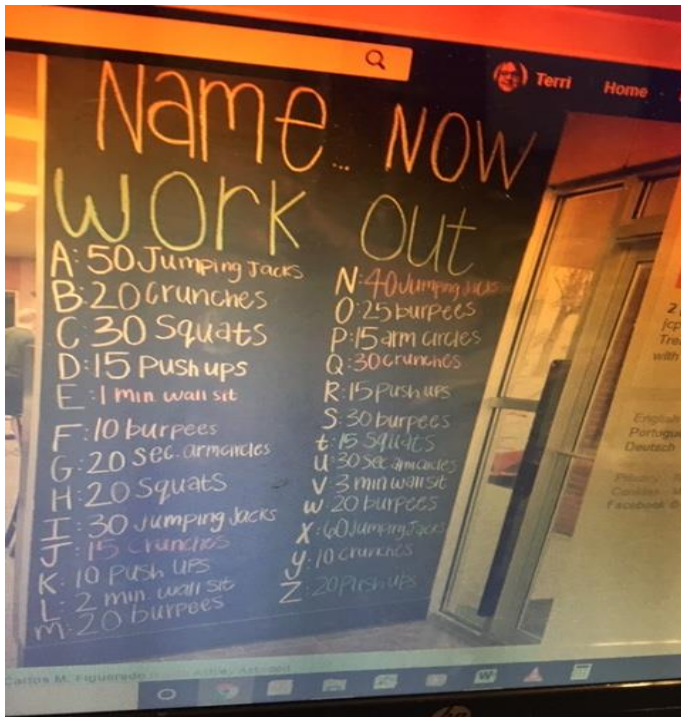 Terri Home
Name... Now
Work Out
A: 50 Jumping Jacks
B: 20 Crunches
C: 30 Squats
D: 15 Push ups
E: 1 min. wall sit
F: 10 burpees
G: 20 Sec. arm circles
H: 20 Squats
I: 30 Jumping Jacks
J: 15 Crunches
K: 10 Push ups
L: 2 min. wall sit
M: 20 burpees
N: 40 Jumping Jacks
O: 25 burpees
P: 15 arm circles
Q: 30 crunches
R: 15 Push ups
S: 30 burpees
t: 15 Squats
U: 30 Sec. arm circles
V: 3 min wall sit
W: 20 burpees
X: 60 Jumping Jacks
y: 10 crunches
Z: 20 Push ups
2
jcp
Tre
with
English
Portugu
Deutsch
Privacy
Cookies
Facebook ©
Carlos M. Figueredo
W
hp